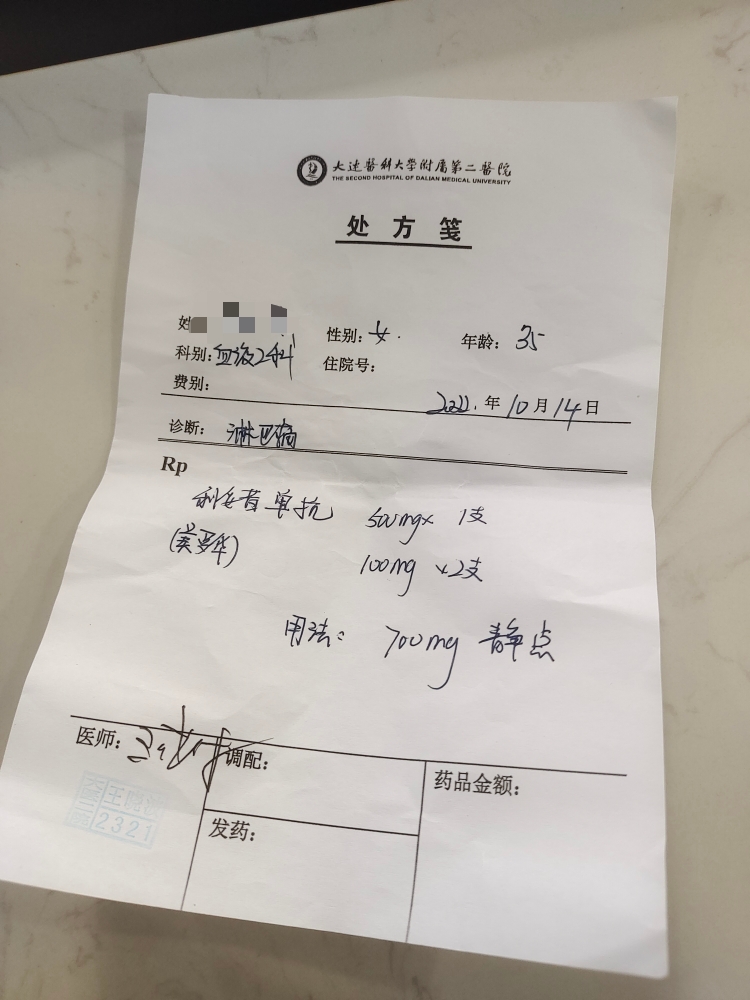 大連醫科大學附屬第二醫院
THE SECOND HOSPITAL OF DALIAN MEDICAL UNIVERSITY
处方笺
姓 性别：女. 年龄：35
科别：血液2科 住院号：
费别： 年 10 月 14 日
诊断：淋巴瘤
Rp
利妥昔单抗 500mg× 1支
(美罗华) 100mg ×2支
用法： 700mg 静点
医师： 调配： 药品金额：
2321
发药：